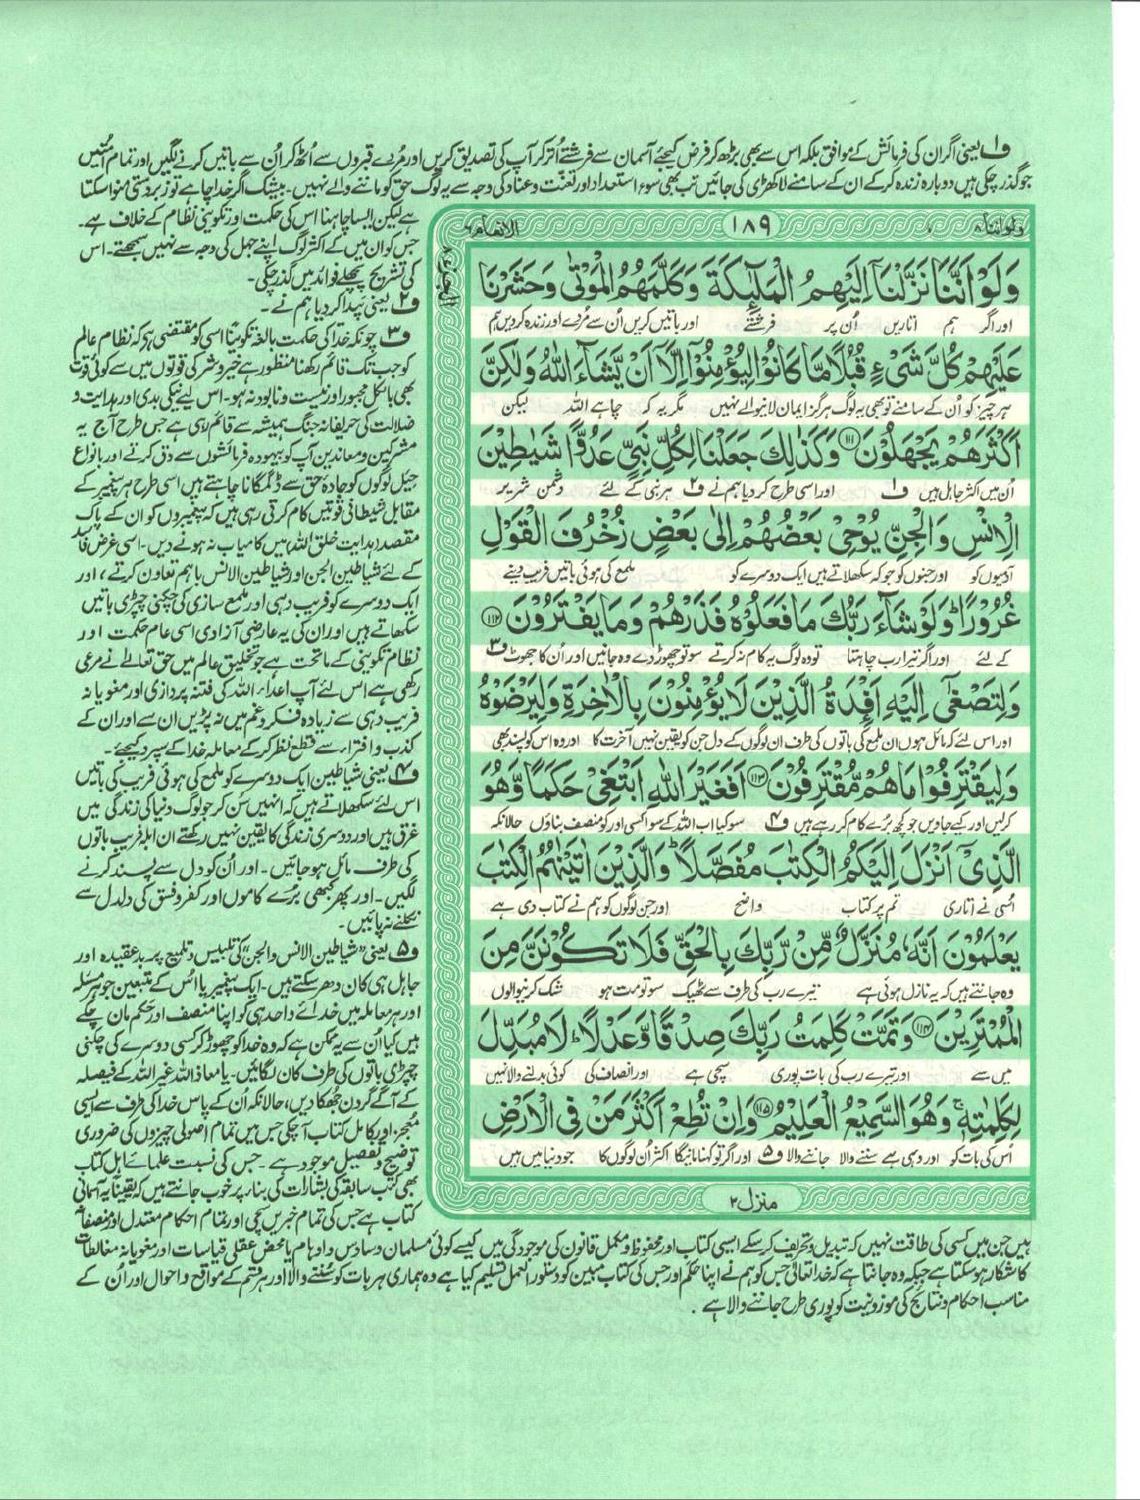 ف۱ یعنی اگر ان کی فرمائش کے موافق بلکہ اس سے بھی بڑھ کر فرض کیجئے آسمان سے فرشتے اتر کر آپ کی تصدیق کریں اور مُردے قبروں سے اُٹھ کر اُن سے باتیں کرنے لگیں اور تمام اُمتیں
جو گذر چکی ہیں دوبارہ زندہ کر کے ان کے سامنے لا کھڑی کی جائیں تب بھی سوء استعداد اور تعنت و عناد کی وجہ سے یہ لوگ حق کو ماننے والے نہیں۔ بیشک اگر خدا چاہے تو زبردستی منوا سکتا
ہے لیکن ایسا چاہنا اس کی حکمت اور تکوینی نظام کے خلاف ہے۔
جس کو ان میں کے اکثر لوگ اپنے جہل کی وجہ سے نہیں سمجھتے۔ اس
کی تشریح پچھلے فوائد میں گذر چکی۔
ف۲ یعنی پیدا کر دیا ہم نے۔
ف۳ چونکہ خدا کی حکمت بالغہ تکوینا اسی کو مقتضی ہوئی کہ نظام عالم
کو جب تک قائم رکھنا منظور ہے خیر و شر کی قوتوں میں سے کوئی قوت
بھی بالکل مجبور اور نیست و نابود نہ ہو۔ اس لیے نیکی بدی اور ہدایت و
ضلالت کی حریفانہ جنگ ہمیشہ سے قائم رہی ہے جس طرح آج یہ
مشرکین و معاندین آپ کو بیہودہ فرمائشوں سے دق کرتے اور بانواع
حیل لوگوں کو جادۂ حق سے ڈگمگانا چاہتے ہیں اسی طرح ہر پیغمبر کے
مقابل شیطانی قوتیں کام کرتی رہی ہیں کہ پیغمبروں کو ان کے پاک
مقصد (ہدایت خلق اللہ) میں کامیاب نہ ہونے دیں۔ اسی غرض فاسد
کے لئے شیاطین الجن اور شیاطین الانس باہم تعاون کرتے، اور
ایک دوسرے کو فریب دہی اور ملمع سازی کی چکنی چپڑی باتیں
سکھاتے ہیں اور ان کی یہ عارضی آزادی اسی عام حکمت اور
نظام تکوینی کے ماتحت ہے جو تخلیق عالم میں حق تعالےٰ نے مرعی
رکھی ہے اس لئے آپ اعداء اللہ کی فتنہ پردازی اور مغویانہ
فریب دہی سے زیادہ فکر و غم میں نہ پڑیں ان سے اور ان کے
کذب و افتراء سے قطع نظر کر کے معاملہ خدا کے سپرد کیجئے۔
ف۴ یعنی شیاطین ایک دوسرے کو ملمع کی ہوئی فریب کی باتیں
اس لئے سکھلاتے ہیں کہ انہیں سُن کر جو لوگ دنیا کی زندگی میں
غرق ہیں اور دوسری زندگی کا یقین نہیں رکھتے ان ابلہ فریب باتوں
کی طرف مائل ہو جائیں۔ اور اُن کو دل سے پسند کرنے
لگیں۔ اور پھر کبھی بُرے کاموں اور کفر و فسق کی دلدل سے
نکلنے نہ پائیں۔
ف۵ یعنی "شیاطین الانس والجن" کی تلبیس و تلمیع پر بدعقیدہ اور
جاہل ہی کان دھر سکتے ہیں۔ ایک پیغمبر یا اُس کے متبعین جو ہر مسئلہ
اور ہر معاملہ میں خدائے واحد ہی کو اپنا منصف اور حکم مان چکے
ہیں کیا اُن سے یہ ممکن ہے کہ وہ خدا کو چھوڑ کر کسی دوسرے کی چکنی
چپڑی باتوں کی طرف کان لگائیں۔ یا معاذ اللہ غیر اللہ کے فیصلہ
کے آگے گردن جھکا دیں، حالانکہ اُن کے پاس خدا کی طرف سے ایسی
معجز اور کامل کتاب آ چکی جس میں تمام اصولی چیزوں کی ضروری
توضیح و تفصیل موجود ہے۔ جس کی نسبت علمائے اہل کتاب
بھی کتب سابقہ کی بشارات کی بناء پر خوب جانتے ہیں کہ یقینا یہ آسمانی
کتاب ہے جس کی تمام خبریں سچی اور تمام احکام معتدل اور منصفانہ
ہیں جن میں کسی کی طاقت نہیں کہ تبدیل و تحریف کر سکے ایسی کتاب اور محفوظ و مکمل قانون کی موجودگی میں کیسے کوئی مسلمان وساوس و اوہام یا محض عقلی قیاسات اور مغویانہ مغالطات
کا شکار ہو سکتا ہے جبکہ وہ جانتا ہے کہ خدا تعالیٰ جس کو ہم نے اپنا حکم اور جس کی کتاب مبین کو دستور العمل تسلیم کیا ہے وہ ہماری ہر بات کو سُننے والا اور ہر قسم کے مواقع و احوال اور اُن کے
مناسب احکام و نتائج کی موزونیت کو پوری طرح جاننے والا ہے۔
ولو اننا ۸ ۱۸۹ الانعام ۶
الجزء ۸
وَلَوْ اَنَّنَا نَزَّلْنَآ اِلَيْهِمُ الْمَلٰٓئِكَةَ وَكَلَّمَهُمُ الْمَوْتٰى وَحَشَرْنَا
اور اگر ہم اتاریں اُن پر فرشتے اور باتیں کریں اُن سے مُردے اور زندہ کر دیں ہم
عَلَيْهِمْ كُلَّ شَيْءٍ قُبُلًا مَّا كَانُوْا لِيُؤْمِنُوْٓا اِلَّآ اَنْ يَّشَآءَ اللّٰهُ وَلٰكِنَّ
ہر چیز کو اُن کے سامنے تو بھی یہ لوگ ہرگز ایمان لانیوالے نہیں مگر یہ کہ چاہے اللہ لیکن
اَكْثَرَهُمْ يَجْهَلُوْنَ ۝۱۱۱ وَكَذٰلِكَ جَعَلْنَا لِكُلِّ نَبِيٍّ عَدُوًّا شَيٰطِيْنَ
اُن میں اکثر جاہل ہیں ف۱ اور اسی طرح کر دیا ہم نے ف۲ ہر نبی کے لئے دشمن شریر
الْاِنْسِ وَالْجِنِّ يُوْحِيْ بَعْضُهُمْ اِلٰى بَعْضٍ زُخْرُفَ الْقَوْلِ
آدمیوں کو اور جنوں کو جو کہ سکھلاتے ہیں ایک دوسرے کو ملمع کی ہوئی باتیں فریب دینے
غُرُوْرًا ۭ وَلَوْ شَآءَ رَبُّكَ مَا فَعَلُوْهُ فَذَرْهُمْ وَمَا يَفْتَرُوْنَ ۝۱۱۲
کے لئے اور اگر تیرا رب چاہتا تو وہ لوگ یہ کام نہ کرتے سو تو چھوڑ دے وہ جانیں اور اُن کا جھوٹ ف۳
وَلِتَصْغٰٓى اِلَيْهِ اَفْـِٕدَةُ الَّذِيْنَ لَا يُؤْمِنُوْنَ بِالْاٰخِرَةِ وَلِيَرْضَوْهُ
اور اس لئے کہ مائل ہوں ان ملمع کی باتوں کی طرف ان لوگوں کے دل جن کو یقین نہیں آخرت کا اور وہ اس کو پسند بھی
وَلِيَقْتَرِفُوْا مَا هُمْ مُّقْتَرِفُوْنَ ۝۱۱۳ اَفَغَيْرَ اللّٰهِ اَبْتَغِيْ حَكَمًا وَّهُوَ
کر لیں اور کیے جاویں جو کچھ بُرے کام کر رہے ہیں ف۴ سو کیا اب اللہ کے سوا کسی اور کو منصف بناؤں حالانکہ
الَّذِيْٓ اَنْزَلَ اِلَيْكُمُ الْكِتٰبَ مُفَصَّلًا ۭ وَالَّذِيْنَ اٰتَيْنٰهُمُ الْكِتٰبَ
اُسی نے اتاری تم پر کتاب واضح اور جن لوگوں کو ہم نے کتاب دی ہے
يَعْلَمُوْنَ اَنَّهٗ مُنَزَّلٌ مِّنْ رَّبِّكَ بِالْحَقِّ فَلَا تَكُوْنَنَّ مِنَ
وہ جانتے ہیں کہ یہ نازل ہوئی ہے تیرے رب کی طرف سے ٹھیک سو تو مت ہو شک کرنیوالوں
الْمُمْتَرِيْنَ ۝۱۱۴ وَتَمَّتْ كَلِمَتُ رَبِّكَ صِدْقًا وَّعَدْلًا ۭ لَا مُبَدِّلَ
میں سے اور تیرے رب کی بات پوری سچی ہے اور انصاف کی کوئی بدلنے والا نہیں
لِكَلِمٰتِهٖ ۚ وَهُوَ السَّمِيْعُ الْعَلِيْمُ ۝۱۱۵ وَاِنْ تُطِعْ اَكْثَرَ مَنْ فِي الْاَرْضِ
اُس کی بات کو اور وہی ہے سننے والا جاننے والا ف۵ اور اگر تو کہنا مانیگا اکثر اُن لوگوں کا جو دنیا میں ہیں
منزل ۲